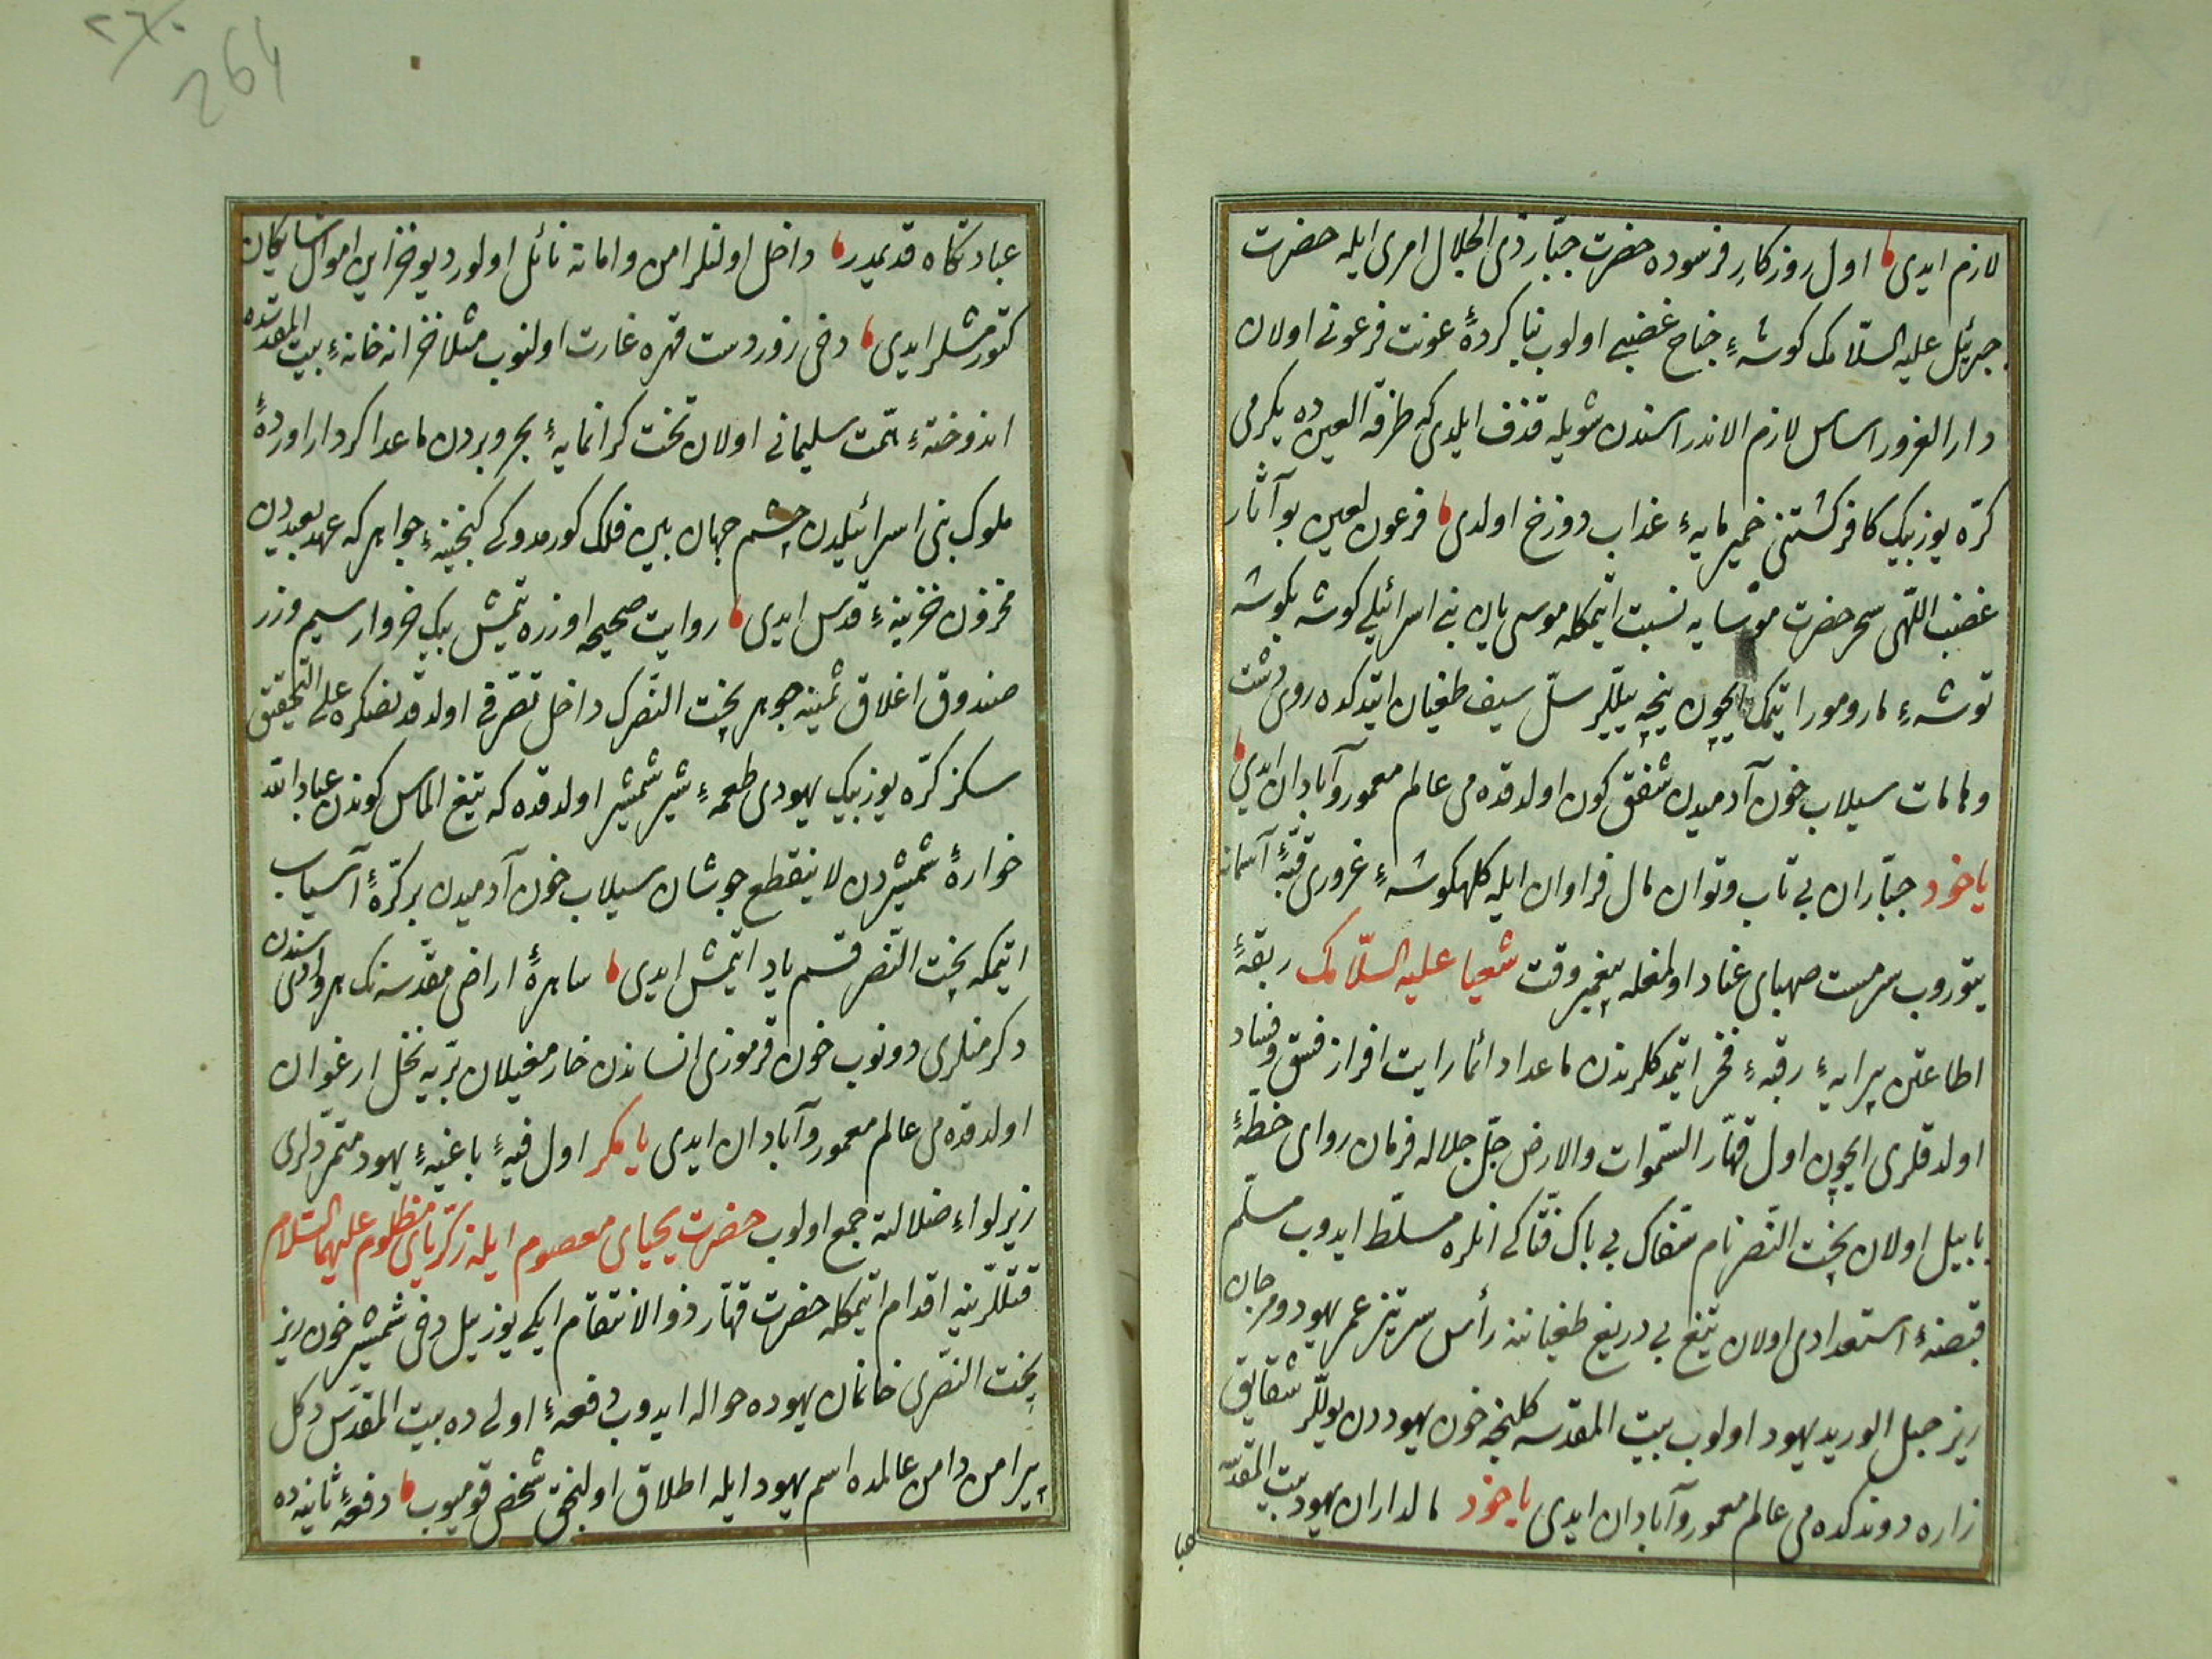 لازم ایدی اول روزکار فرسوده حضرت جبّار ذی الجلال امری ایله حضرت
جبرئیل علیه السّلامک کوشهٔ جناح غضبی اولوب بنا کردهٔ عونت فرعونی اولان
دار الغرور اساس لازم الاندراسندن شویله قذف ایلدی که طرفة العین ده یکرمی
کرّه یوز بیک کافر کشتنی خمیر مایهٔ عذاب دوزخ اولدی فرعون لعین بو آثار
غضب اللّهی سحر حضرت موسایه نسبت ایتمکله موسی یان بنی اسرائیلی کوشه بکوشه
توشهٔ مار و مور ایتمک ایچون نیجه ییللر سلّ سیف طغیان ایتدکده روی دشت
و هامات سیلاب خون آدمیدن شفق کون اولدقده می عالم معمور و آبادان ایدی
یاخود جبّاران بی تاب و توان مال فراوان ایله کلهکوشهٔ غروری قبّهٔ آسمانه
یتوروب سرمست صهبای عناد اولمغله پیغمبر وقت شعیا علیه السّلامک ربقهٔ
اطاعتن پیرایهٔ رقبهٔ فخر ایتمدکلرندن ماعدا دائما رایت افراز فسق و فساد
اولدقلری ایچون اول قهّار السّموات والارض جلّ جلاله فرمان روای خطّهٔ
بابیل اولان بخت النّصر نام سفّاک بی باک فتّاکی انلره مسلّط ایدوب مسلّم
قبضهٔ استعدادی اولان تیغ بی دریغ طغیاننه رأس سر تیز عمر یهود و مرجان
ریز حبل الورید یهود اولوب بیت المقدسه کلنجه خون یهوددن یوللر شقایق
زاره دوندکده می عالم معمور و آبادان ایدی یاخود مالداران یهود بیت المقدّسه
عبا
264
عبادتکاه قدیمدر داخل اولنلر امن و امانه نائل اولور دیو خزاین اموال شایکان
کتورمشلر ایدی دخی زور دست قهره غارت اولنوب مثلا خزانه خانهٔ بیت المقدّسده
اندوختهٔ همّت سلیمانی اولان تخت کرانمایهٔ بحر و بردن ماعدا کردار اوردهٔ
ملوک بنی اسرائیلدن چشم جهان بین فلک کورمدوکی کنجینهٔ جواهر که عهد بعیددن
مخزون خزینهٔ قدس ایدی روایت صحیحه اوزره یتمش بیک خروار سیم و زر
صندوق اغلاق ثمینه جوهر بخت النّصرک داخل تصرّفی اولدقدنصکره علی التحقیق
سکز کرّه یوز بیک یهودی طعمهٔ شیر شمشیر اولدقده که تیغ الماس کوندن عباد الله
خوارهٔ شمشیردن لاینقطع جوشان سیلاب خون آدمیدن بر کرّهٔ آسیاب
ایتمکه بخت النّصر قسم یاد ایتمش ایدی ساهرهٔ اراضی مقدّسه نک هر وادیسندن
دکرمنلری دونوب خون قرموزی انساندن خار مغیلان برّیه نخل ارغوان
اولدقده می عالم معمور و آبادان ایدی یا مکر اول فیهٔ باغیهٔ یهود متمرّدلری
زیر لواء ضلالته جمع اولوب حضرت یحیای معصوم ایله زکریّای مظلوم علیهما السّلام
قتللرینه اقدام ایتمکله حضرت قهّار ذو الانتقام ایکی یوز ییل دخی شمشیر خون ریز
بخت النّصری خانمان یهوده حواله ایدوب دفعهٔ اولی ده بیت المقدّس دکل
پیرامن دامن عالمده اسم یهود ایله اطلاق اولنجق شخص قومیوب دفعهٔ ثانیه ده